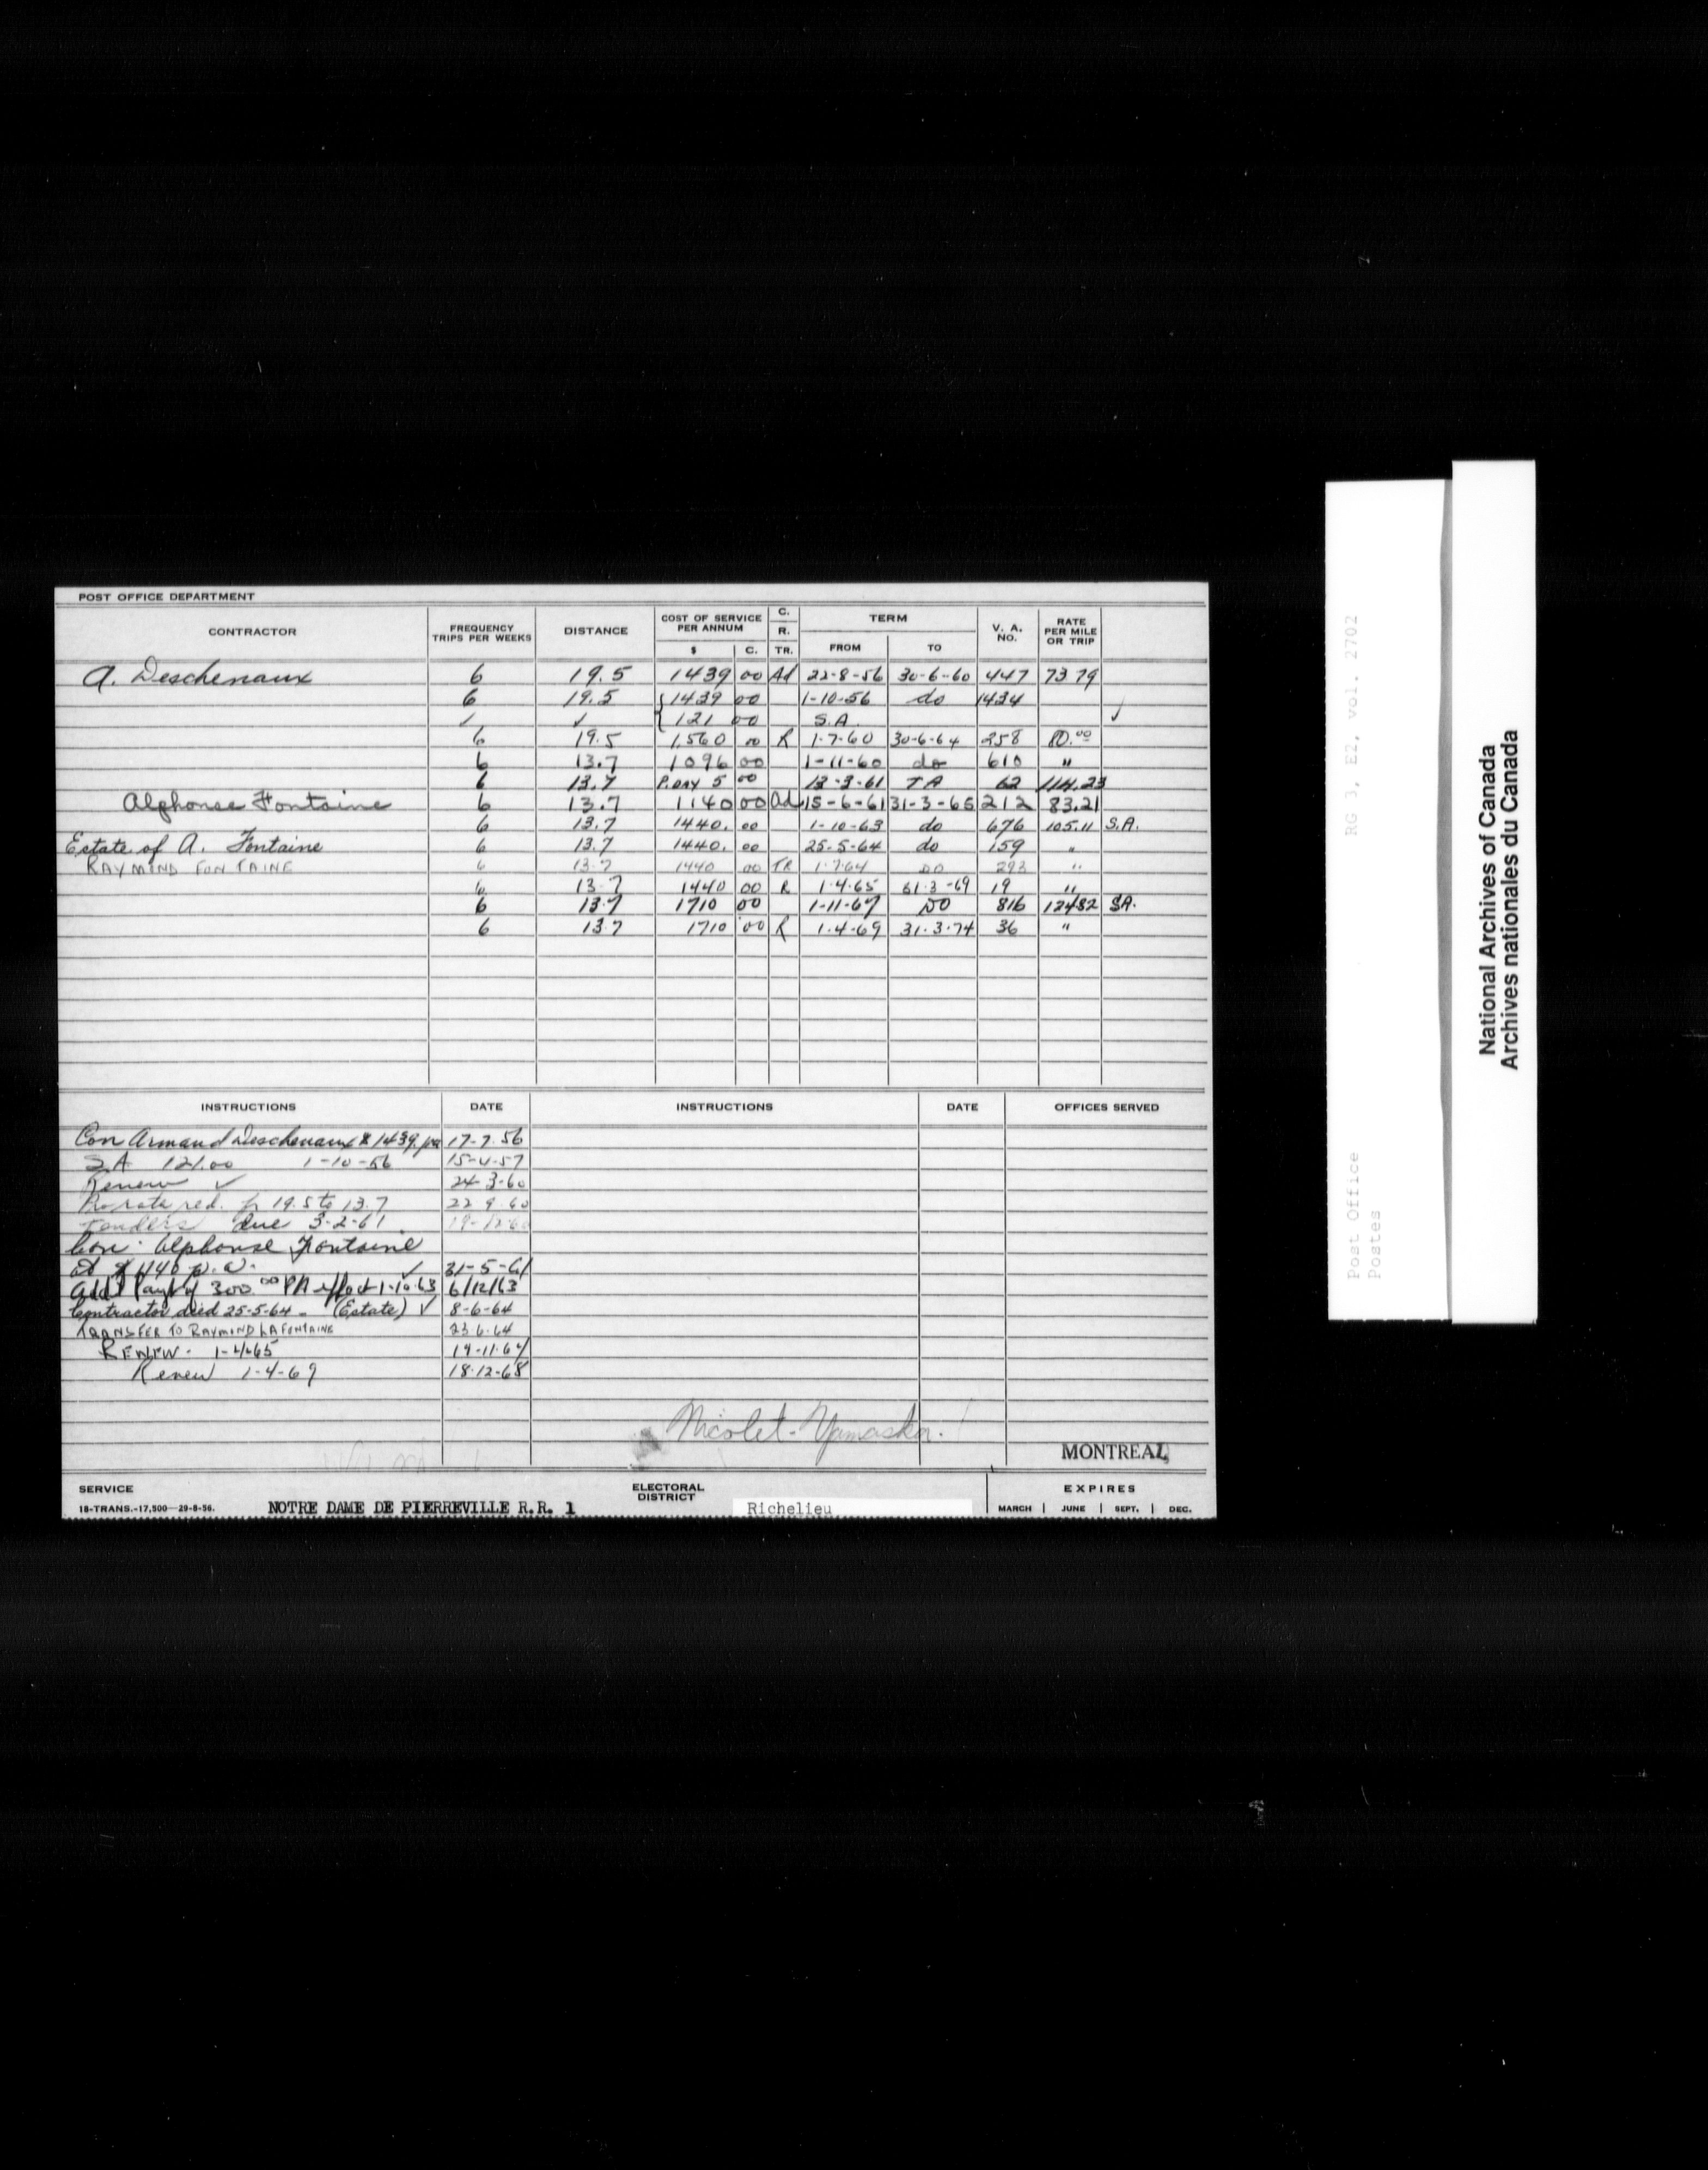 POST OFFICE DEPARTMENT
CONTRACTOR FREQUENCY TRIPS PER WEEKS DISTANCE COST OF SERVICE PER ANNUM $ C. C. R. TR. TERM FROM TO V. A. NO. RATE PER MILE OR TRIP
A. Deschenaux 6 19.5 1439 00 Ad 22-8-56 30-6-60 447 73.79
6 19.5 { 1439 00 1-10-56 do 1434
✓ ✓ { 121 00 S.A. ✓
6 19.5 1,560 00 R 1-7-60 30-6-64 258 80.00
6 13.7 1096 00 1-11-60 do 610 "
6 13.7 P. DAY 5 00 13-3-61 TA 62 114.23
Alphonse Fontaine 6 13.7 1140 00 Ad 15-6-61 31-3-65 212 83.21
6 13.7 1440. 00 1-10-63 do 676 105.11 S.A.
Estate of A. Fontaine 6 13.7 1440. 00 25-5-64 do 159 "
RAYMOND FONTAINE 6 13.7 1440 00 TR 1.7.64 DO 293 "
6 13.7 1440 00 R 1.4.65 31.3-69 19 "
6 13.7 1710 00 1-11-67 DO 816 124.82 SA.
6 13.7 1710 00 R 1.4-69 31.3.74 36 "
INSTRUCTIONS DATE INSTRUCTIONS DATE OFFICES SERVED
Con Armand Deschenaux $1439. pa 17-7-56
SA 121.00 1-10-56 15-4-57
Renew ✓ 24-3-60
Prorate red. fr 19.5 to 13.7 22 9.60
Tenders due 3-2-61 19-12-60
Con. Alphonse Fontaine
at $1140 p.a. ✓ 31-5-61
Add'l Payt of 300 00 PA effect 1-10-63 6/12/63
Contractor died 25-5-64 - (Estate) ✓ 8-6-64
TRANSFER TO RAYMOND LAFONTAINE 23.6.64
RENEW - 1-4-65 19-11-64
Renew 1-4-69 18-12-68
Nicolet-Yamaska.
MONTREAL
SERVICE ELECTORAL DISTRICT EXPIRES
18-TRANS.-17,500-29-8-56. NOTRE DAME DE PIERREVILLE R.R. 1 Richelieu MARCH | JUNE | SEPT. | DEC.
RG 3, E2, vol. 2702
Post Office
Postes
National Archives of Canada
Archives nationales du Canada